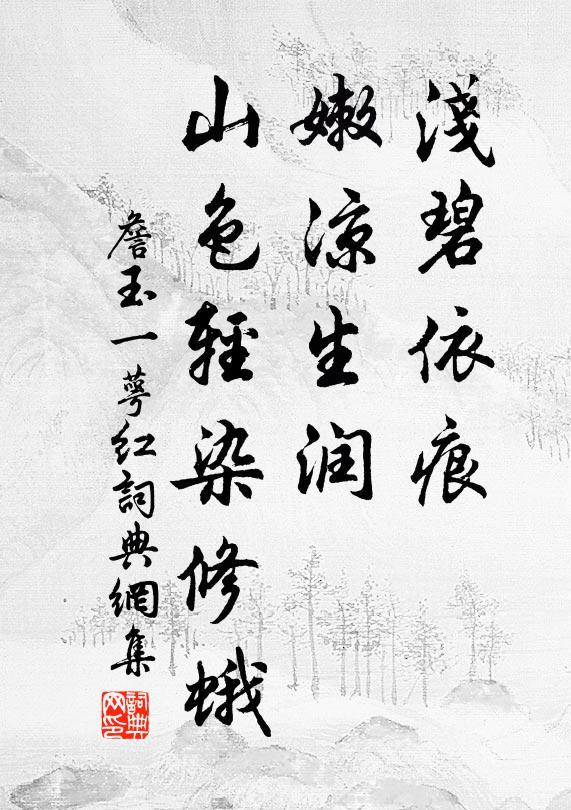 淺碧依痕
嫩涼生润
山色輕染修蛾
詹玉一萼红詞典網集
詞典网印